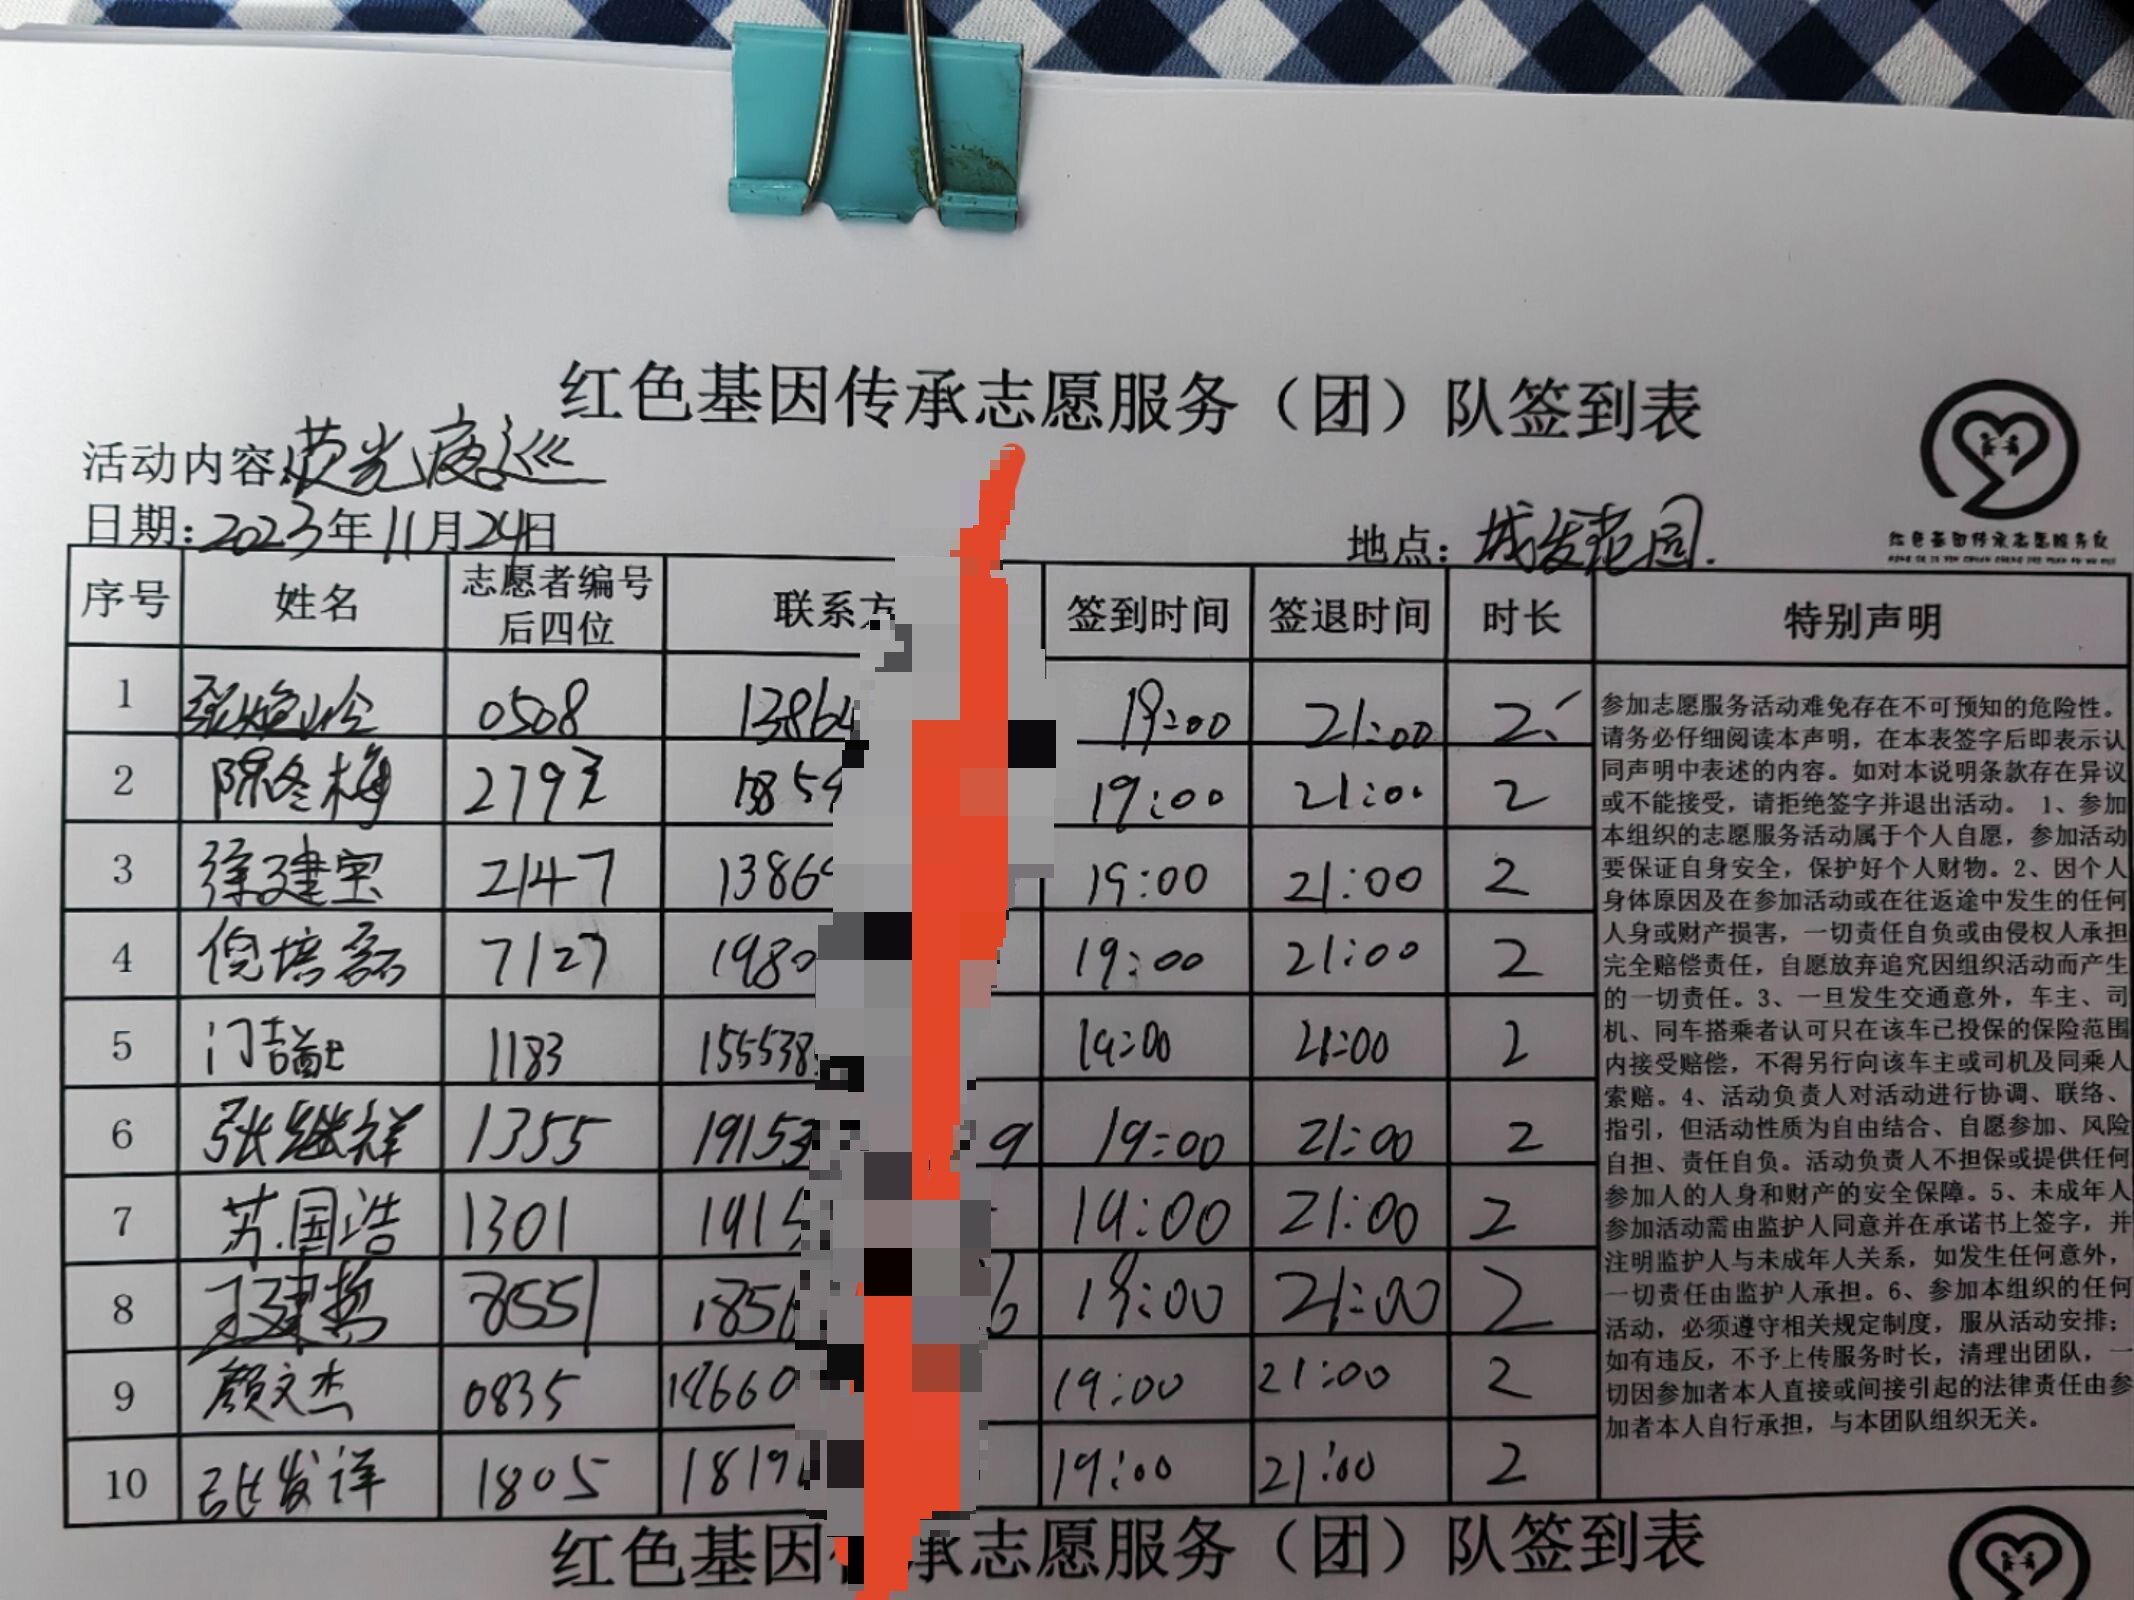 红色基因传承志愿服务（团）队签到表
活动内容:荧光夜巡
日期:2023年11月24日
地点：城发花园.
红色基因传承志愿服务队
序号 姓名 志愿者编号后四位 联系方 签到时间 签退时间 时长 特别声明
1 0508 13864 19:00 21:00 2
2 陈冬梅 2792 1585 19:00 21:00 2
3 徐建宝 2147 1386 19:00 21:00 2
4 倪培磊 7127 1980 19:00 21:00 2
5 1183 155538 19:00 21:00 2
6 张继祥 1355 19153 9 19:00 21:00 2
7 苏国浩 1301 1915 19:00 21:00 2
8 8551 1856 6 19:00 21:00 2
9 颜文杰 0835 18660 19:00 21:00 2
10 张发详 1805 1819 19:00 21:00 2
参加志愿服务活动难免存在不可预知的危险性。
请务必仔细阅读本声明，在本表签字后即表示认
同声明中表述的内容。如对本说明条款存在异议
或不能接受，请拒绝签字并退出活动。 1、参加
本组织的志愿服务活动属于个人自愿，参加活动
要保证自身安全，保护好个人财物。2、因个人
身体原因及在参加活动或在往返途中发生的任何
人身或财产损害，一切责任自负或由侵权人承担
完全赔偿责任，自愿放弃追究因组织活动而产生
的一切责任。3、一旦发生交通意外，车主、司
机、同车搭乘者认可只在该车已投保的保险范围
内接受赔偿，不得另行向该车主或司机及同乘人
索赔。4、活动负责人对活动进行协调、联络、
指引，但活动性质为自由结合、自愿参加、风险
自担、责任自负。活动负责人不担保或提供任何
参加人的人身和财产的安全保障。5、未成年人
参加活动需由监护人同意并在承诺书上签字，并
注明监护人与未成年人关系，如发生任何意外，
一切责任由监护人承担。6、参加本组织的任何
活动，必须遵守相关规定制度，服从活动安排；
如有违反，不予上传服务时长，清理出团队，一
切因参加者本人直接或间接引起的法律责任由参
加者本人自行承担，与本团队组织无关。
红色基因传承志愿服务（团）队签到表